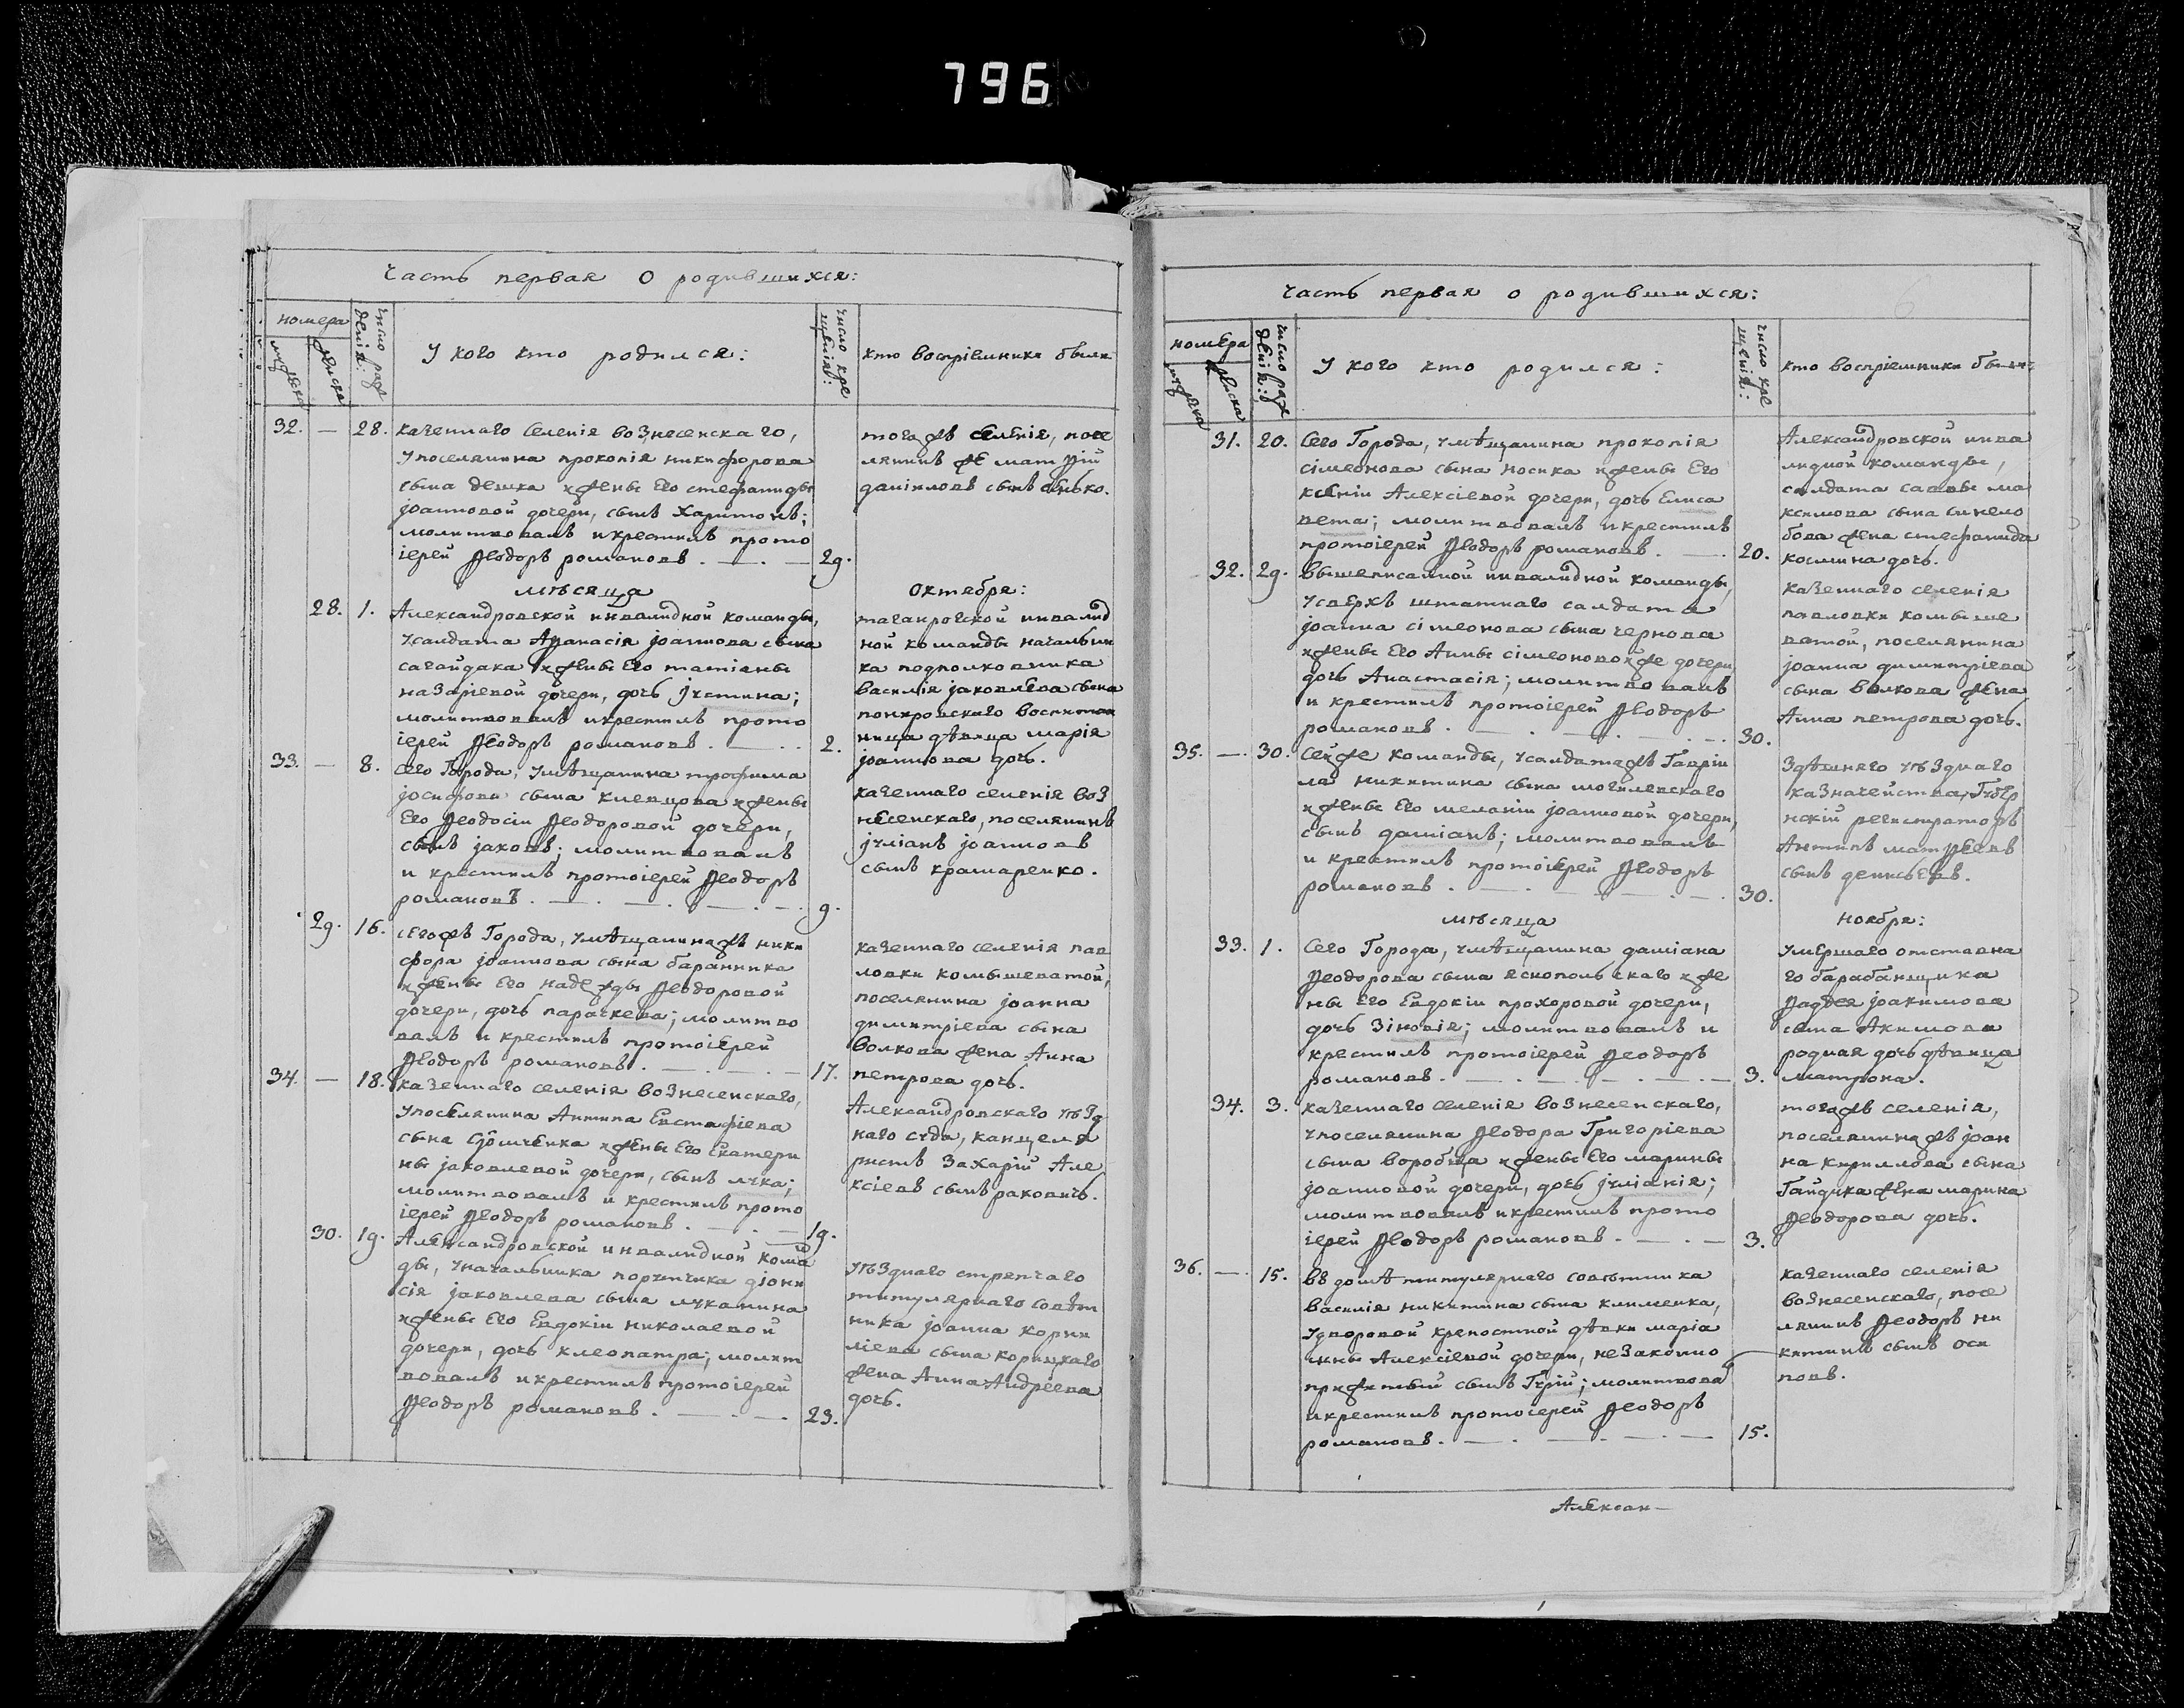 796
Часть первая О родившихся:
номера
мужеска
женска
число рож
денія:
У кого кто родился:
число кре
щенія:
кто воспріемники были
32. — 28. казеннаго селенія вознесенскаго,
упоселянина прокопія никифорова
сына дешка ижены Его стефаниды
іоанновой дочери, сынъ Харитонъ;
молитвовалъ икрестилъ прото
іерей Ѳеодоръ романовъ. 29.
тогожъ селенія, посе
лянинъ же матѳій
даніиловъ сынъ
мѣсяца Октебря:
28. 1. Александровской инвалидной команды,
усалдата Аѳанасія іоаннова сына
сагайдака ижены Его татіаны
назаріевой дочери, дочь іустина;
молитвовалъ икрестилъ прото
іерей Ѳеодоръ романовъ. 2.
таганрогской инвалид
ной команды начальни
ка подполковника
василія іаковлева сына
покровскаго воспитан
ница дѣвица марія
іоаннова дочь.
33. — 8. Сего Города, умѣщанина трофима
іосифова сына клевцова ижены
Его Ѳеодосіи Ѳеодоровой дочери,
сынъ іаковъ; молитвовалъ
и крестилъ протоіерей Ѳеодоръ
романовъ. 9.
казеннаго селенія воз
несенскаго, поселянинъ
іуліанъ іоанновъ
сынъ крамаренко.
29. 16. сегожъ Города, умѣщанинажъ ники
фора іоаннова сына баранника
ижены Его надежды Ѳеодоровой
дочери, дочь параскева; молитво
валъ и крестилъ протоіерей
Ѳеодоръ романовъ. 17.
казеннаго селенія пав
ловки комышеватой,
поселянина іоанна
димитріева сына
волкова жена Анна
петрова дочь.
34. — 18. казеннаго селенія вознесенскаго,
упоселянина Антипа Евстафіева
сына ижены Его Екатери
ны іаковлевой дочери, сынъ лука;
молитвовалъ и крестилъ прото
іерей Ѳеодоръ романовъ. 19.
Александровскаго уѣзд
наго суда, канцеля
ристъ Захарій Але
ксіевъ сынъ раковичь.
30. 19. Александровской инвалидной коман
ды, уначальника порутчика діони
сія іаковлева сына луканина
ижены Его Евдокіи николаевой
дочери, дочь клеопатра; молит
вовалъ икрестилъ протоіерей
Ѳеодоръ романовъ. 23.
уѣзднаго стрепчаго
титулярнаго совѣт
ника іоанна корни
ліева сына корицкаго
жена Анна Андріева
дочь.
Часть первая о родившихся:
номера
мужеска
женска
число рож
денія:
У кого кто родился:
число кре
щенія:
кто воспріемники были:
31. 20. Сего Города, умѣщанина прокопія
сімеонова сына носика ижены Его
ксеніи Алексіевой дочери, дочь Елиса
вета; молитвовалъ икрестилъ
протоіерей Ѳеодоръ романовъ. 20.
Александровской инва
лидной команды,
салдата саввы ма
ксимова сына синего
бова жена стефанида
космина дочь.
32. 29. вышеписанной инвалидной команды,
усверхъ штатнаго салдата
іоанна сімеонова сына чернова
ижены Его Анны сімеоновойже дочери,
дочь Анастасія; молитвовалъ
и крестилъ протоіерей Ѳеодоръ
романовъ. 30.
казеннаго селенія
павловки комыше
ватой, поселянина
іоанна димитріева
сына волкова жена
Анна петрова дочь.
35. — 30. сейже команды, усалдатажъ Гавріи
ла никитина сына могилевскаго
ижены Его меланіи іоанновой дочери,
сынъ даміанъ; молитвовалъ
и крестилъ протоіерей Ѳеодоръ
романовъ. 30.
Здѣшняго уѣзднаго
казначейства, Губер
нскій регистраторъ
Антипъ матѳеевъ
сынъ денисьевъ.
мѣсяца ноября:
33. 1. Сего Города, умѣщанина даміана
Ѳеодорова сына яснопольскаго иже
ны Его Евдокіи прохоровой дочери,
дочь Зіновія; молитвовалъ и
крестилъ протоіерей Ѳеодоръ
романовъ. 3.
умершаго отставна
го барабанщика
Ѳадѳея іоакимова
сына Акимова
родная дочь дѣвица
матрона.
34. 3. казеннаго селенія вознесенскаго,
упоселянина Ѳеодора Григоріева
сына воробца ижены Его марины
іоанновой дочери, дочь іуліанія;
молитвовалъ икрестилъ прото
іерей Ѳеодоръ романовъ. 3.
тогожъ селенія,
поселянинажъ іоан
на кириллова сына
Гайдука жена марина
Ѳеодорова дочь.
36. — 15. въ домѣ титулярнаго совѣтника
василія никитина сына клименка,
удворовой крепостной дѣвки маріа
нны Алексіевой дочери, незаконно
прижитый сынъ Гурій; молитвова
икрестилъ протоіерей Ѳеодоръ
романовъ. 15.
казеннаго селенія
вознесенскаго, посе
лянинъ Ѳеодоръ ни
китинъ сынъ оси
повъ.
Алексан-